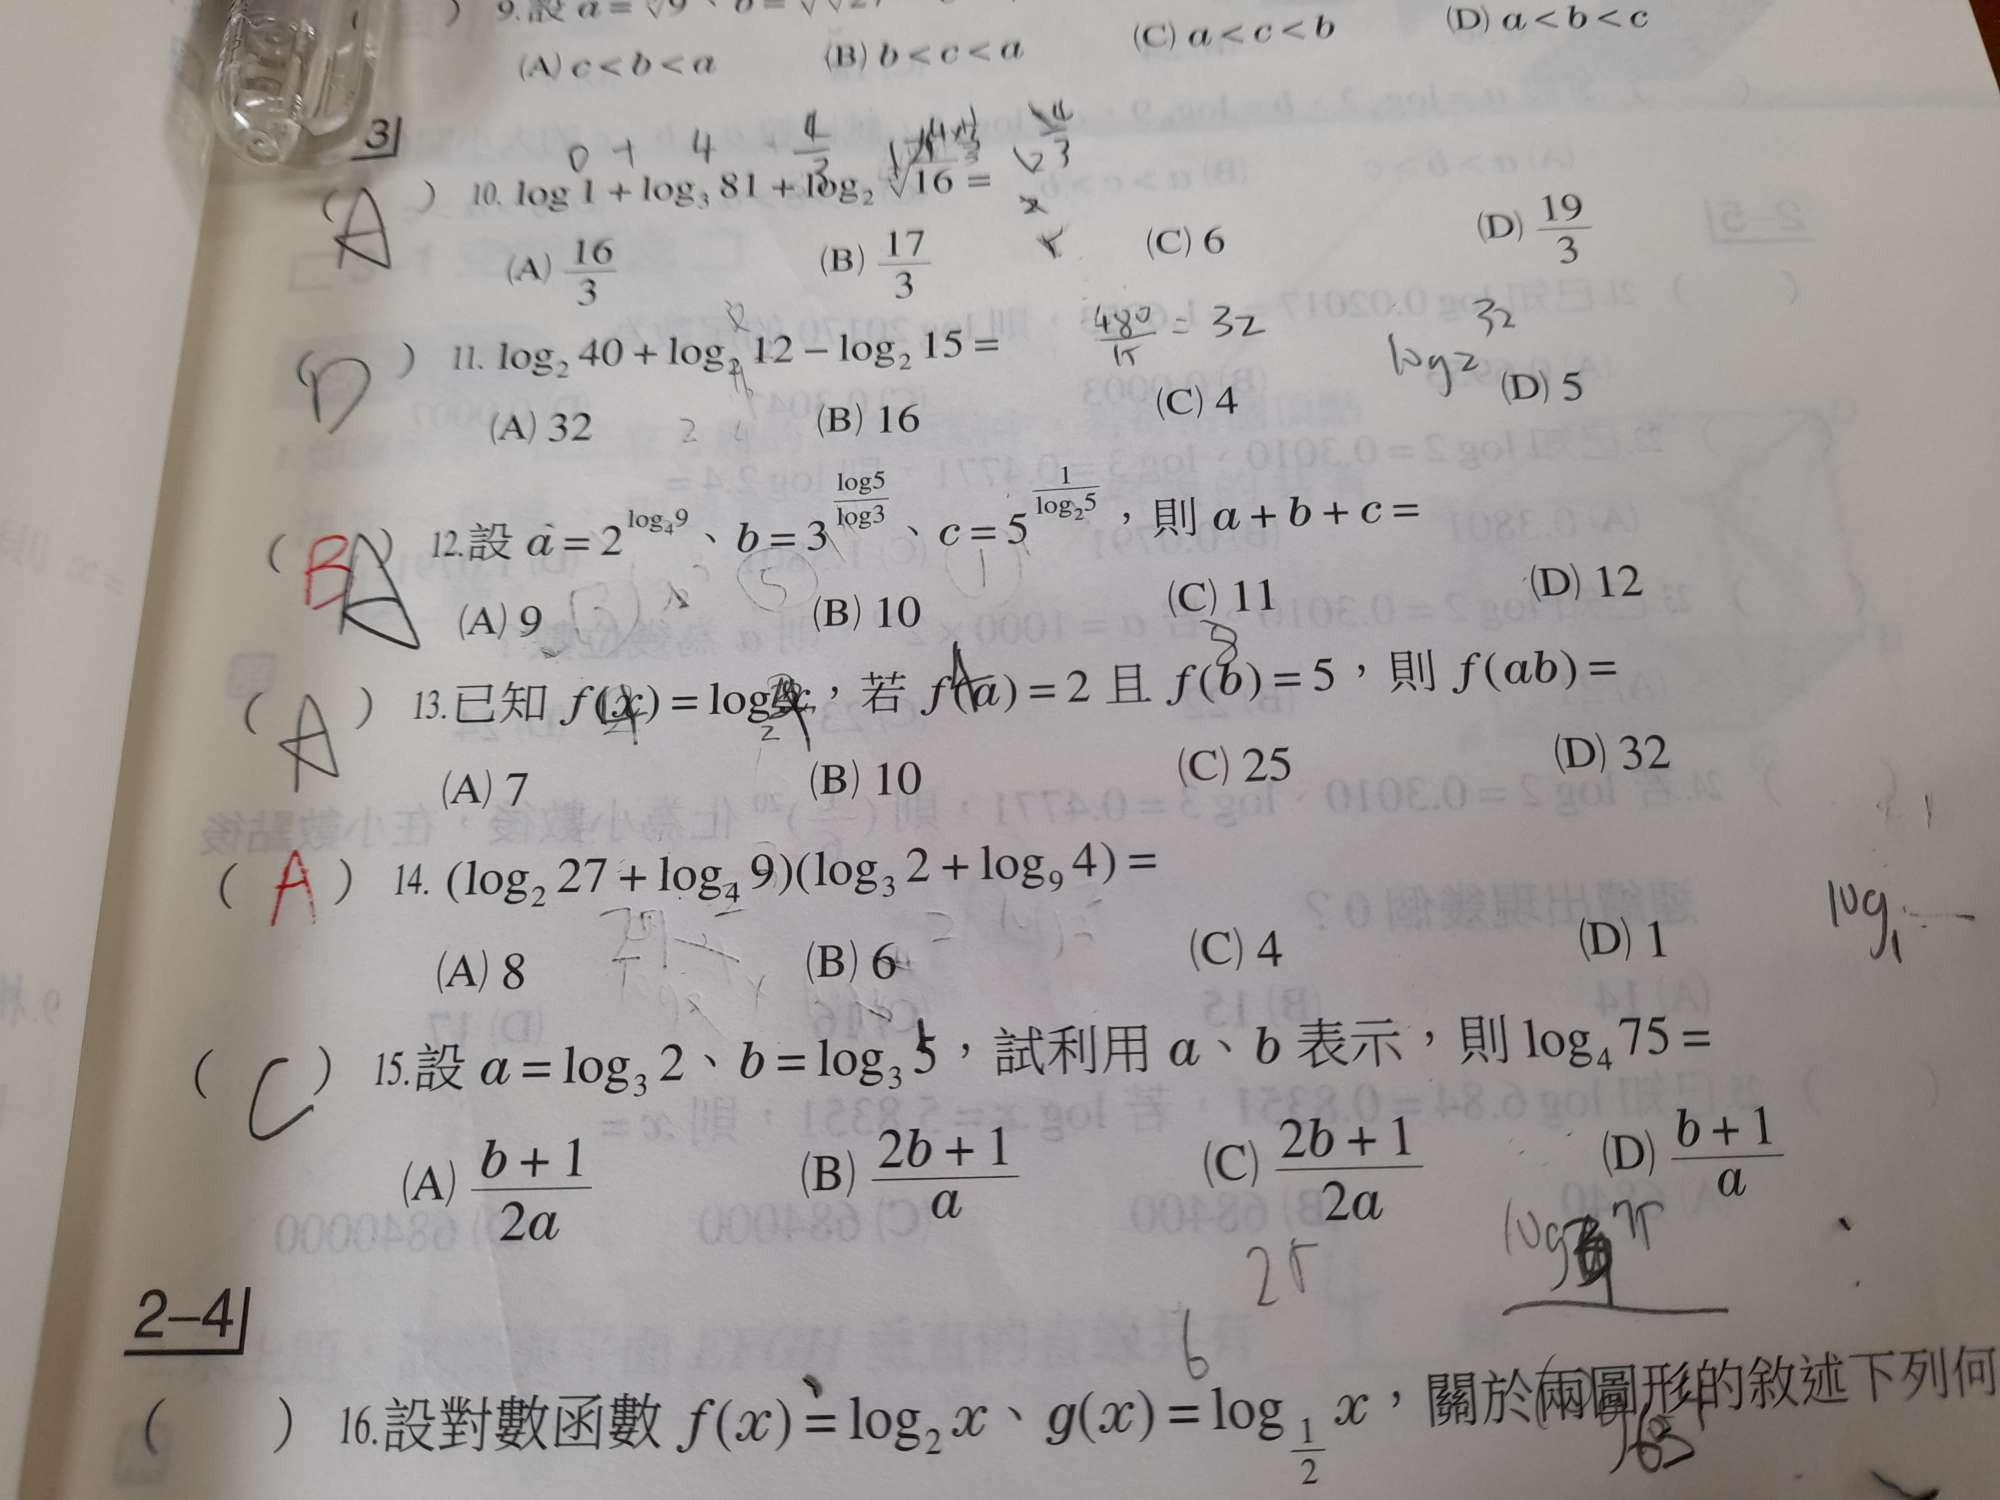 9.設 a = ∛9、b =
(A) c < b < a (B) b < c < a (C) a < c < b (D) a < b < c
3
0 + 4 4/3
( A ) 10. log 1 + log₃ 81 + log₂ ∛16 =
(A) 16/3 (B) 17/3 (C) 6 (D) 19/3
480/15 = 32 log₂ 32
( D ) 11. log₂ 40 + log₂ 12 − log₂ 15 =
(A) 32 (B) 16 (C) 4 (D) 5
( B A ) 12.設 a = 2^(log₄9)、b = 3^(log5/log3)、c = 5^(1/log₂5)，則 a + b + c =
5 1
(A) 9 (B) 10 (C) 11 (D) 12
( A ) 13.已知 f(x) = log x，若 f(a) = 2 且 f(b) = 5，則 f(ab) =
(A) 7 (B) 10 (C) 25 (D) 32
( A ) 14. (log₂ 27 + log₄ 9)(log₃ 2 + log₉ 4) =
(A) 8 (B) 6 (C) 4 (D) 1
log
( C ) 15.設 a = log₃ 2、b = log₃ 5，試利用 a、b 表示，則 log₄ 75 =
(A) (b + 1)/2a (B) (2b + 1)/a (C) (2b + 1)/2a (D) (b + 1)/a
25
2–4
6
( ) 16.設對數函數 f(x) = log₂ x、g(x) = log_(1/2) x，關於兩圖形的敘述下列何